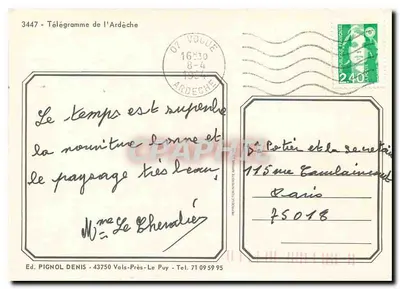 3447 - Télégramme de l'Ardèche
07 VOGUE
16H30
8-4
ARDECHE
2,40
Le temps est superbe
la nourriture bonne et
le paysage très beau.
Mme Le Chevalier
Dr Potier et la secrétaire
115 rue Caulaincourt
Paris
75018
Ed. PIGNOL DENIS - 43750 Vals-Près-Le Puy - Tel. 71 09 59 95